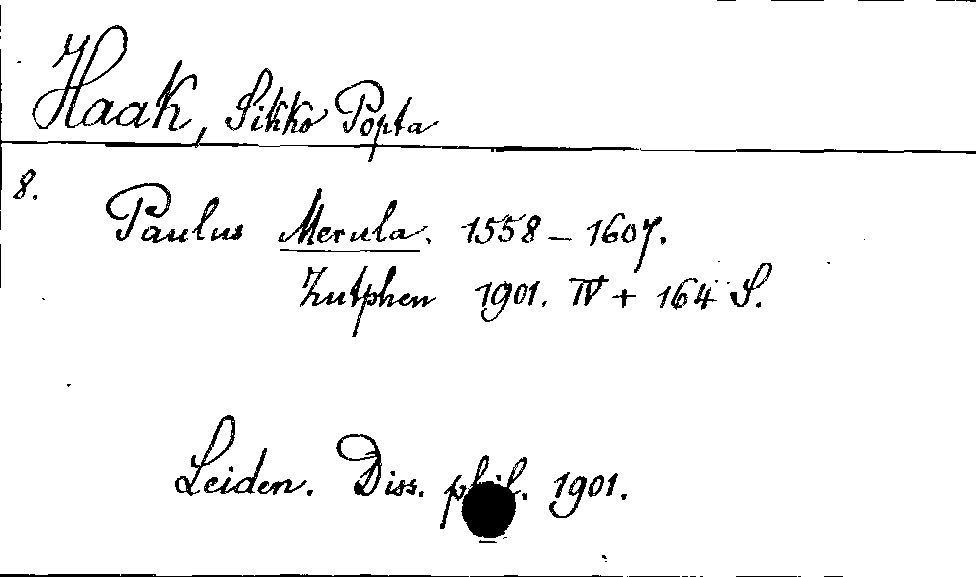 Haak, Sikko Popta
8.
Paulus Merula. 1558-1607.
Zutphen 1901. IV + 164 S.
Leiden. Diss. phil. 1901.